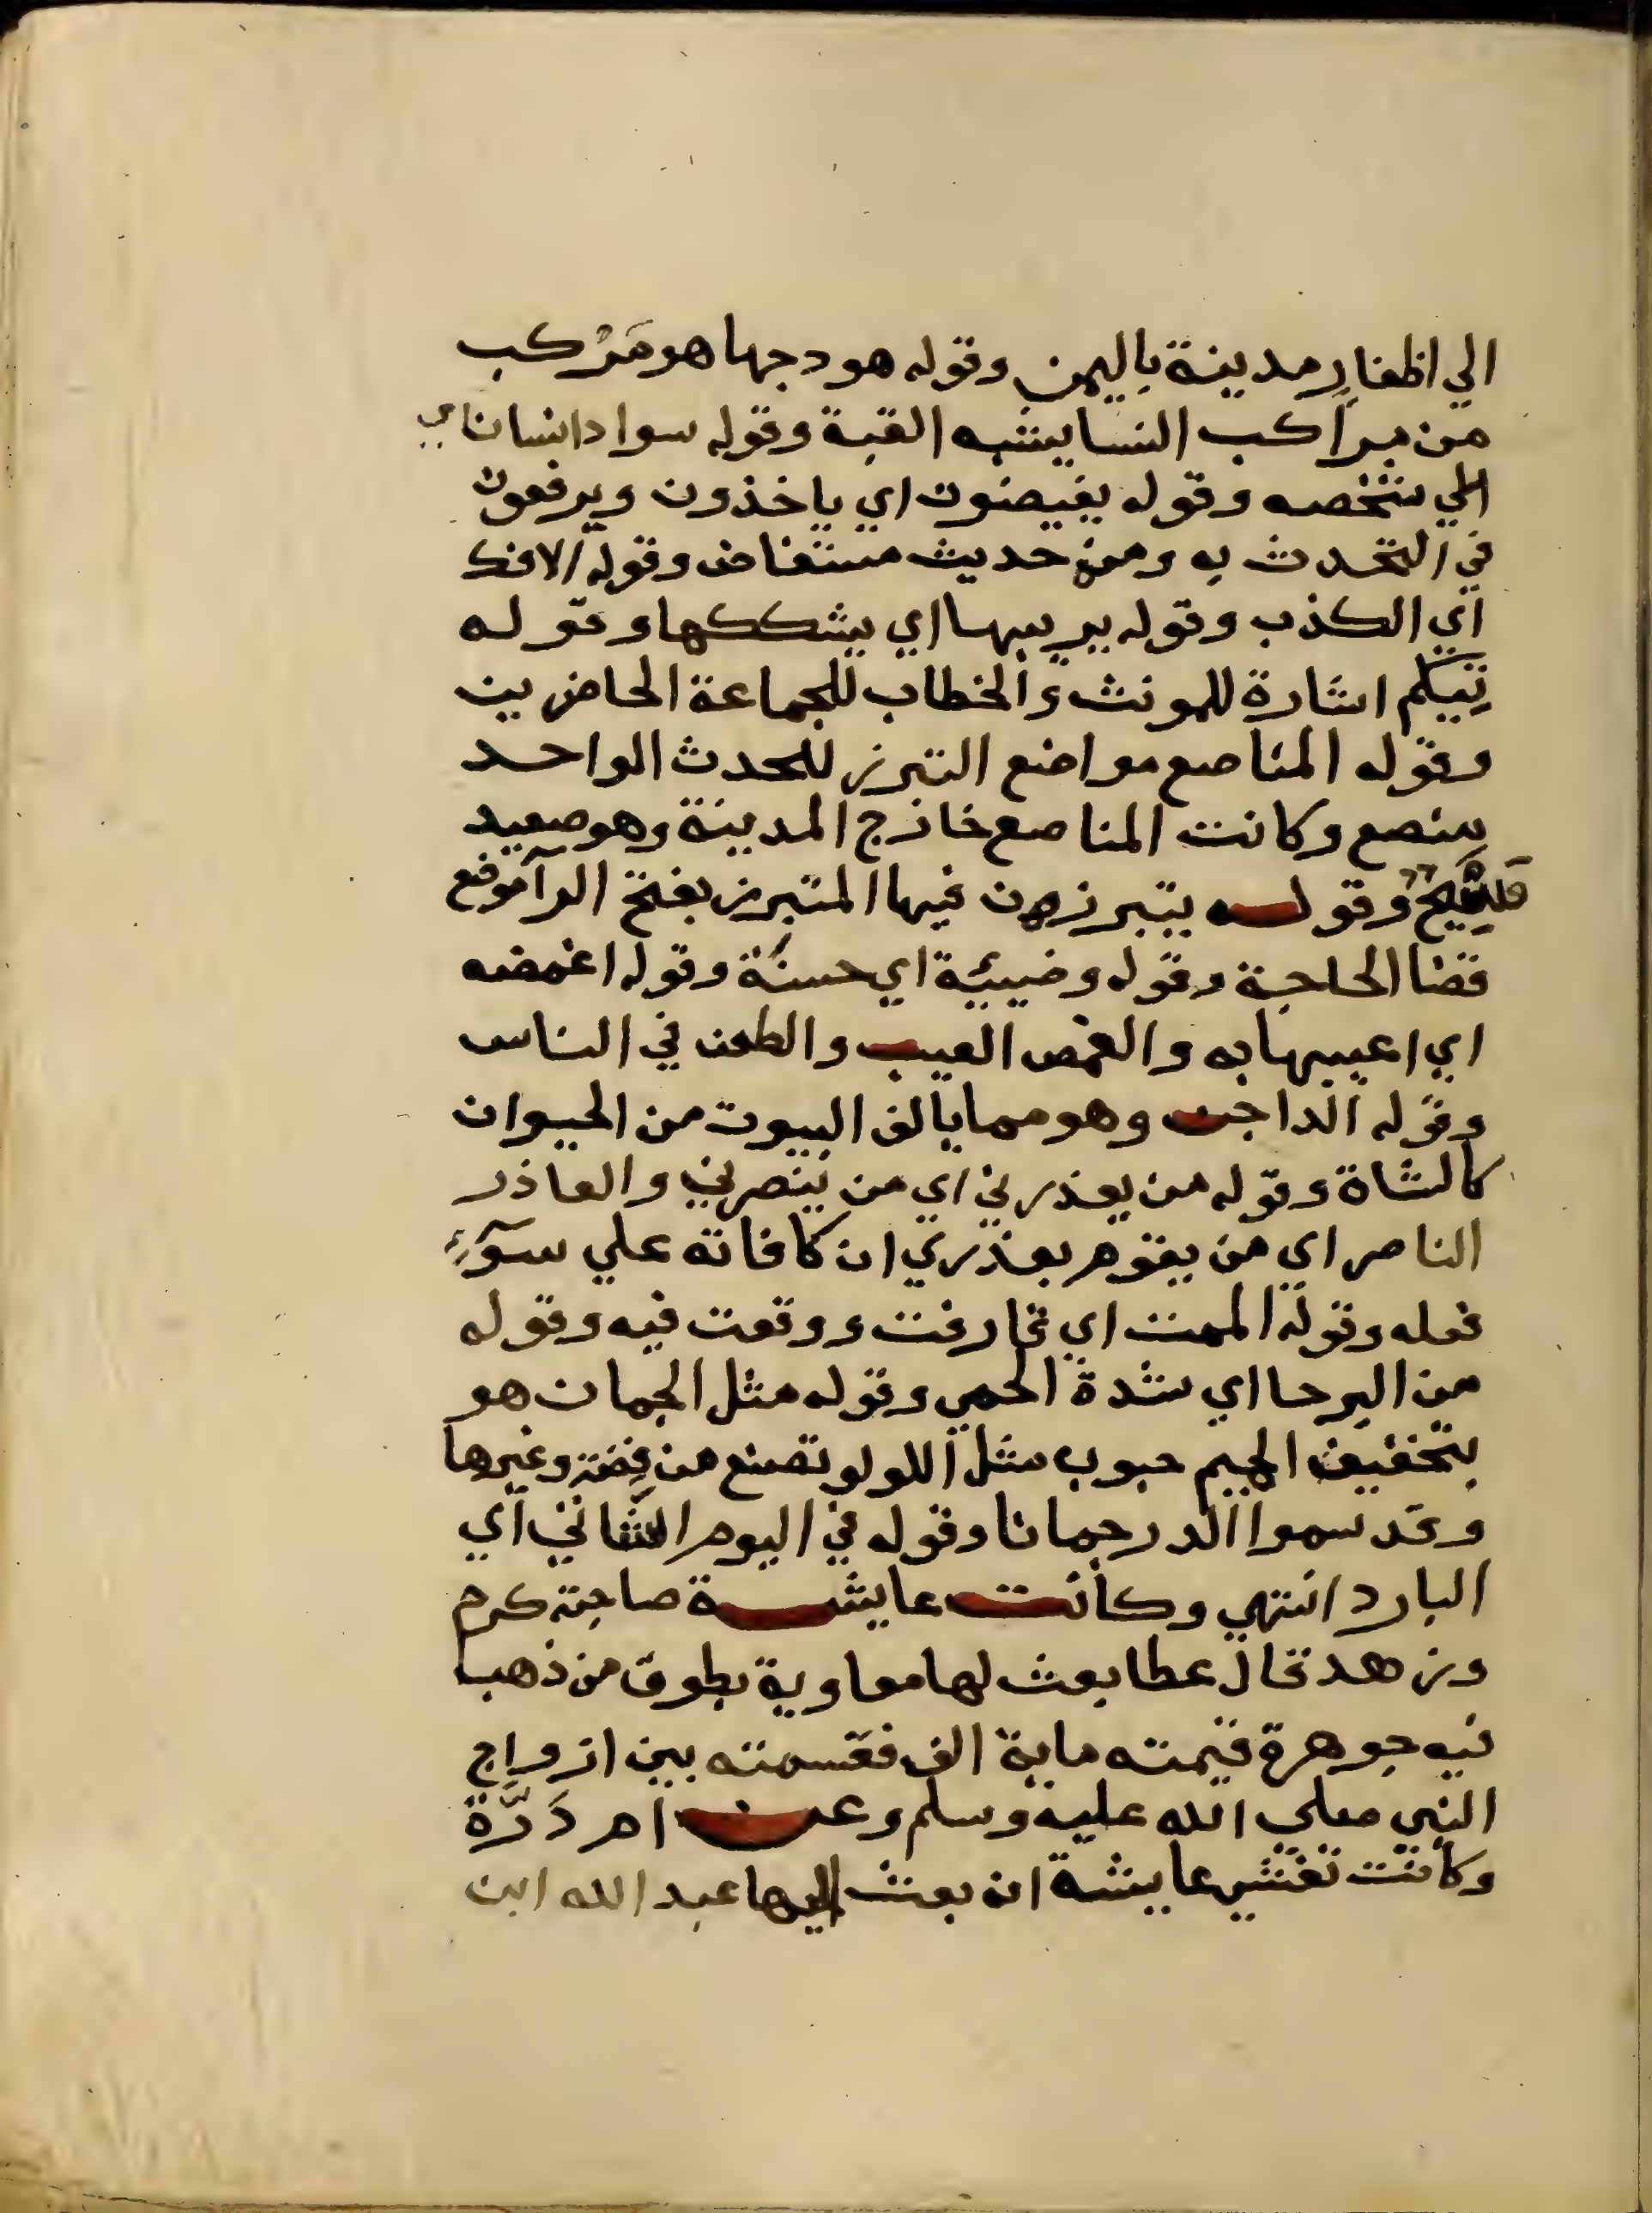 الي اظفارِ مدينة باليمن وقوله هودجها هو مَرْكب
من مراكب النسا يشبه القبة وقوله سوادانسان اي
الي شخصه وقوله يفيضون اي ياخذون ويرفعون
في التحدث به ومن حديث مستفاض وقوله الافك
اي الكذب وقوله يريبها اي يشككها وقوله
تِيكم اشارة للمونث والخطاب للجماعة الحاضرين
وقوله المناصع مواضع التبرز للحدث الواحد
منصع وكانت المناصع خارج المدينة وهو صعيد
وقوله يتبرزون فيها المتبرز بفتح الرآ موقع
قضا الحاجة وقوله وضيئة اي حسنة وقوله اغمضه
اي اعيبها به والغمص العيب والطعن في الناس
وقوله الداجن وهو مما يالف البيوت من الحيوان
كالشاة وقوله من يعذرني اي من ينصرني والعاذر
الناصر اي من يقوم بعذري ان كافاته علي سوٓءِ
فعله وقوله الممت اي قارفت ووقعت فيه وقوله
من البرحا اي شدة الحمي وقوله مثل الجمان هو
بتخفيف الجيم حبوب مثل اللولو تصنع من فِضة وغيرها
وقد سموا الدر رجمانا وقوله في اليوم الشاني اي
البارد انتهي وكانت عايشة صاحبة كرم
وزهد قال عطا بعث لها معاوية بطوق من ذهب
فيه جوهرة قيمته ماية الف فقسمته بين ازواج
النبي صلي الله عليه وسلم وعن ام دَرَّة
وكانت تغشي عايشة ان بعث اليها عبد الله ابن